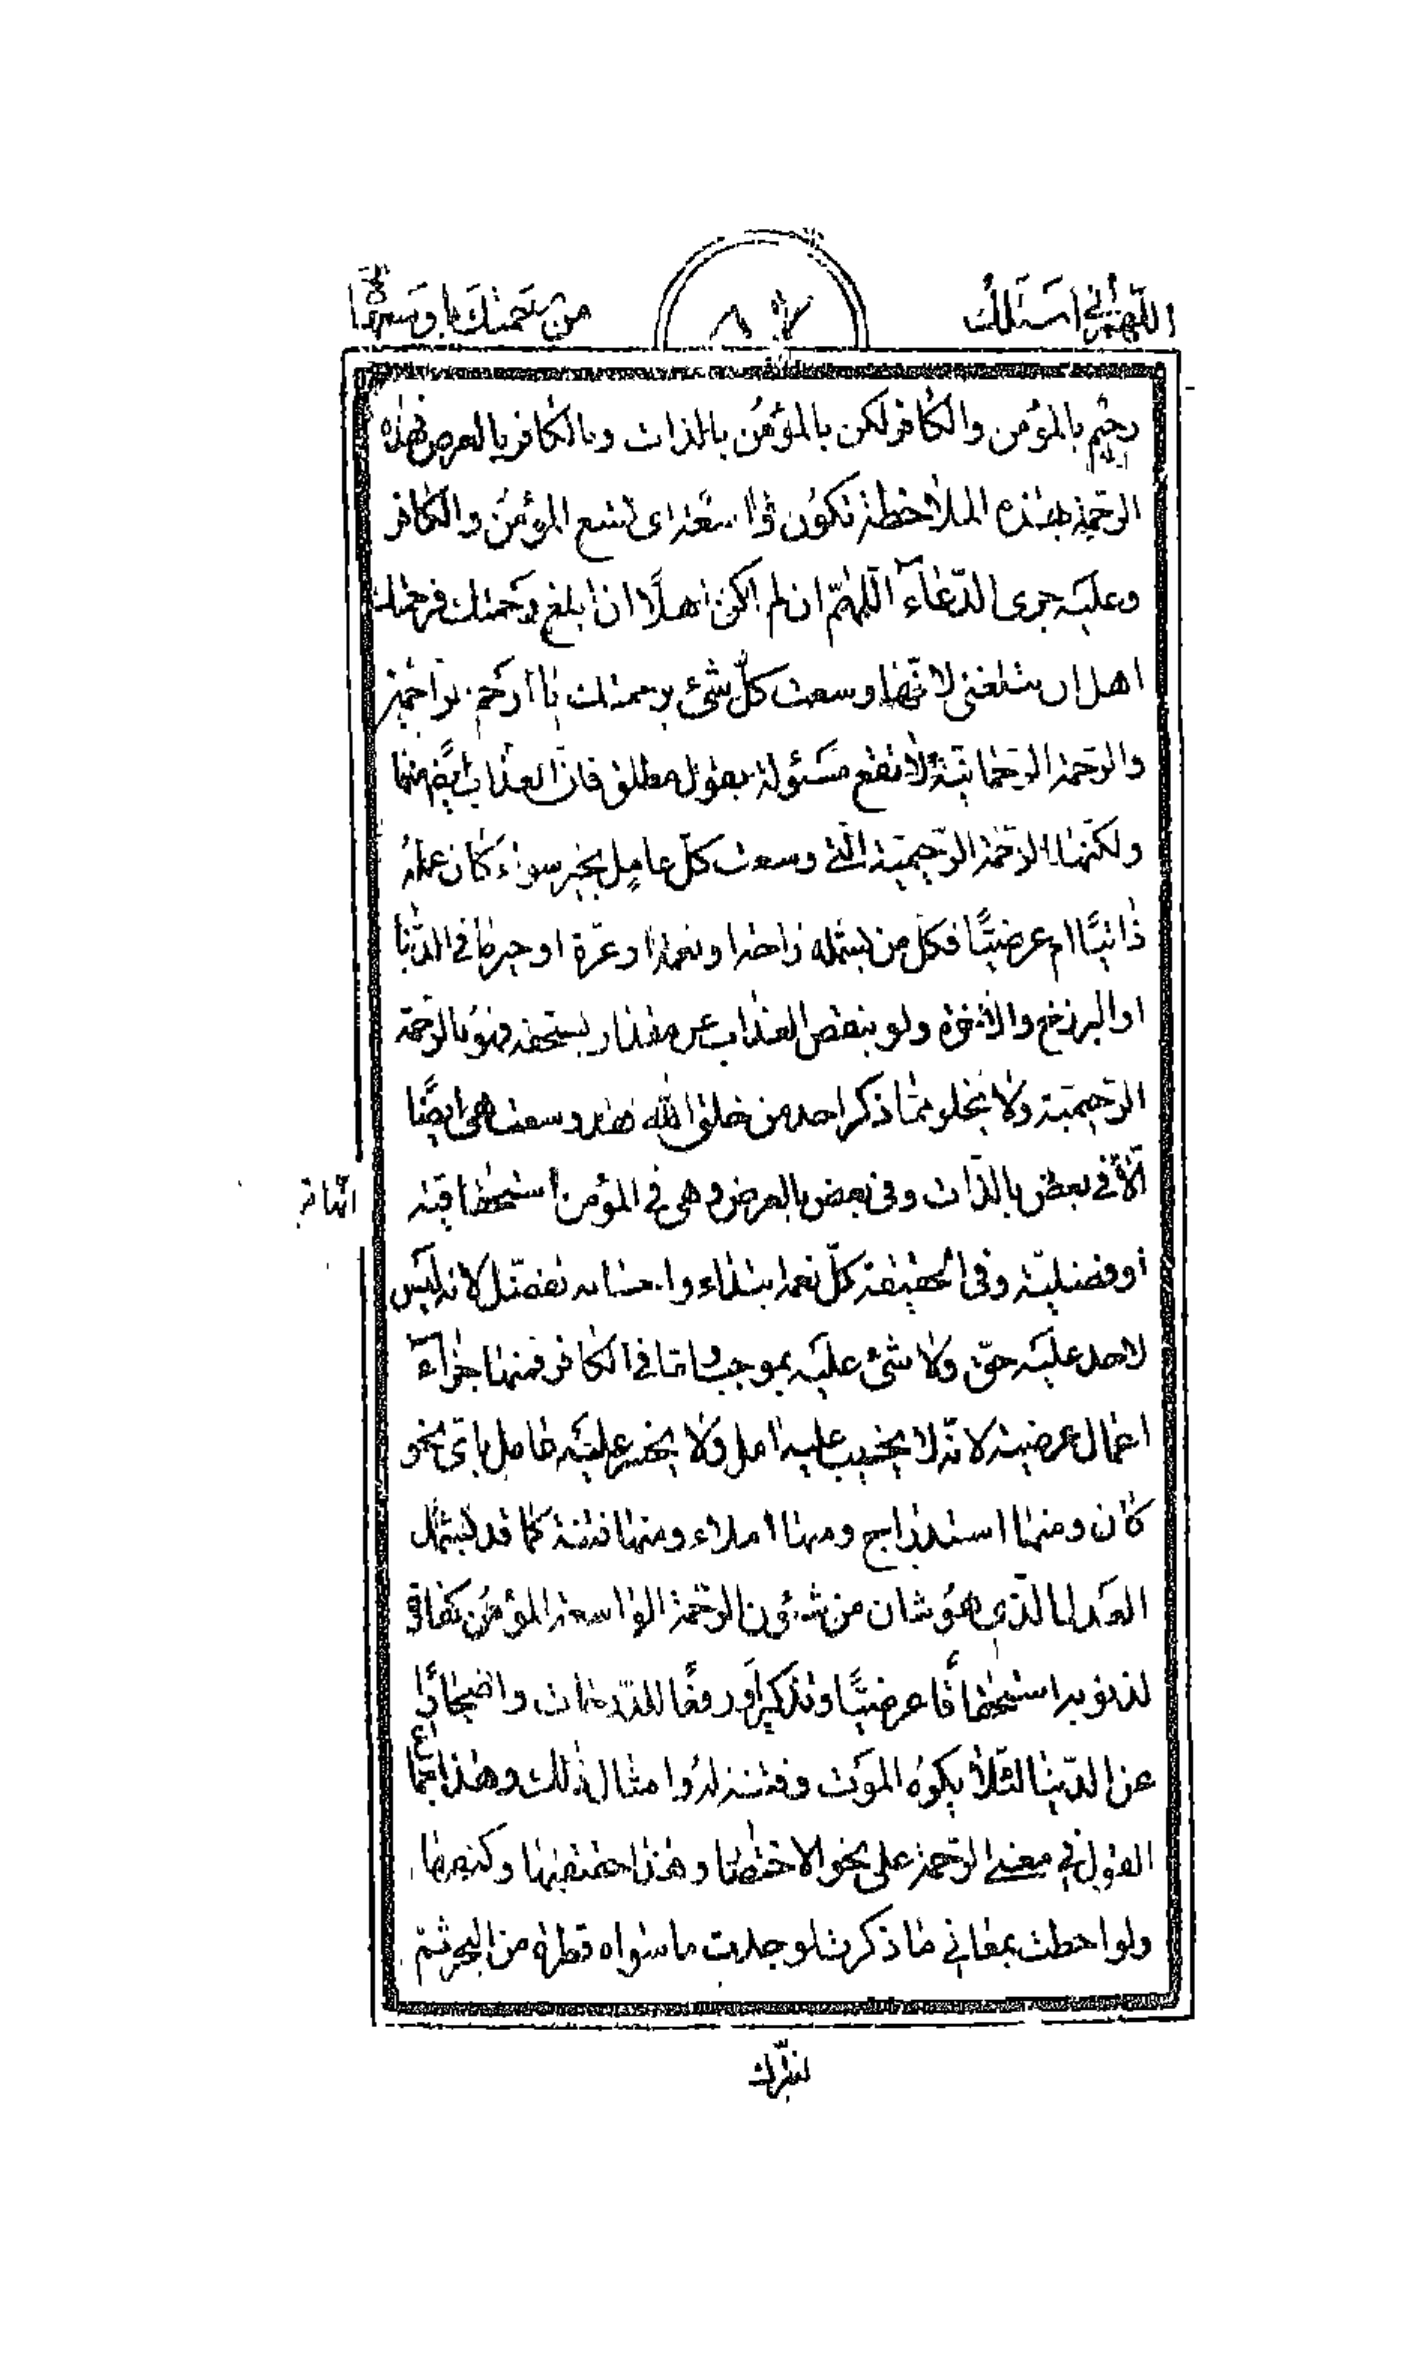 اللهم انی اسئلك
٨٧
من رحمتك باوسعها
رحیم بالمؤمن والکافر لکن بالمؤمن بالذات وبالکافر بالعرض فهذه
الرحمة بهذه الملاحظة تکون واسعة ای تسع المؤمن والکافر
وعلیه جری الدعاء اللهم ان لم اکن اهلا ان ابلغ رحمتك فرحمتك
اهل ان تبلغنی لانها وسعت کل شئ برحمتك یا ارحم الراحمین
والرحمة الرحمانیة لا تقع مسئولة بقول مطلق فان العذاب ایضا منها
ولکنها الرحمة الرحیمیة التی وسعت کل عامل بخیر سواء کان عمله
ذاتیا ام عرضیا فکل من یشمله راحة او نعمة او عزة او خیر ما فی الدنیا
او البرزخ والاخرة ولو بنقص العذاب عن مقدار یستحقه فهو بالرحمة
الرحیمیة ولا یخلو مما ذکر احد من خلق الله فقد وسعت هی ایضا
الا فی بعض بالذات وفی بعض بالعرض وهی فی المؤمن استحقاقیة
او فضلیة وفی الحقیقة کل نعمه ابتداء واحسانه تفضل لانه لیس
لاحد علیه حق ولا شئ علیه بموجب واما فی الکافر فمنها جزاء
اعمال عرضیة لانه لا یخیب علیه امل ولا یخسر علیه عامل بای نحو
کان ومنها استدراج ومنها املاء ومنها فتنة کما قد یشمل
العدل الذی هو شان من شئون الرحمة الواسعة المؤمن کفارة
لذنوبه استحقاقا عرضیا وتذکیرا ورفعا للدرجات واضجارا
عن الدنیا لئلا یکره الموت وفتنة له وامثال ذلك وهذا اجماع
القول فی معنی الرحمة علی نحو الاختصار وهذا حقیقتها وکنهها
ولو احطت بمعانی ما ذکرت لوجدت ما سواه قطرة من البحر ثم